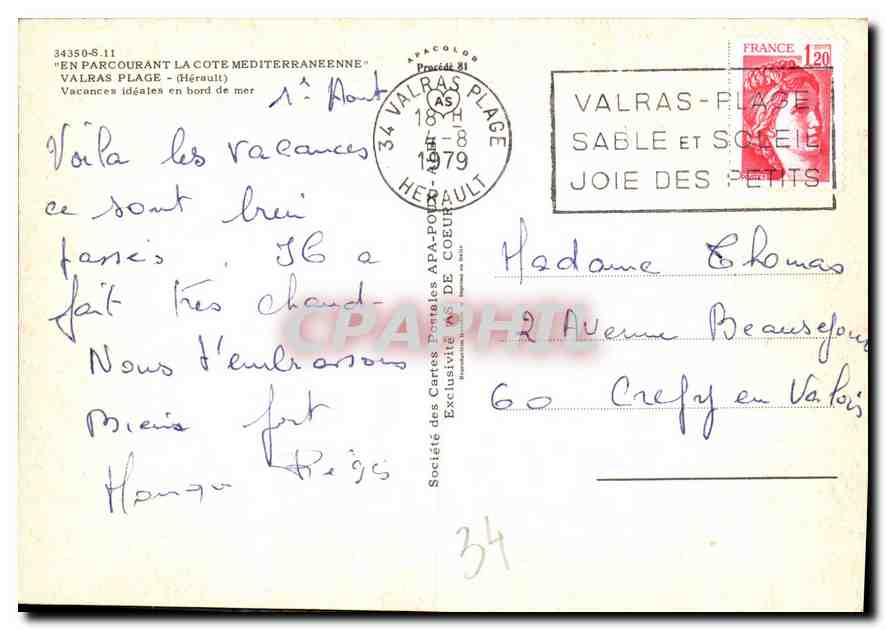 34350-S.11
"EN PARCOURANT LA COTE MEDITERRANEENNE"
VALRAS PLAGE - (Hérault)
Vacances idéales en bord de mer
1er Aout
Voila les vacances
ce sont bien
passés. Il a
fait très chaud.
Nous t'embrassons
Bien fort
Régis
APACOLOR
Procédé 81
Société des Cartes Postales APA-POUX - ALBI
Exclusivité AS DE COEUR
34 VALRAS PLAGE
AS
18 H
4-8
1979
HERAULT
VALRAS-PLAGE
SABLE ET SOLEIL
JOIE DES PETITS
FRANCE 1,20
Madame Thomas
2 Avenue Beausejour
60 Crepy en Valois
34
CPAPHIL